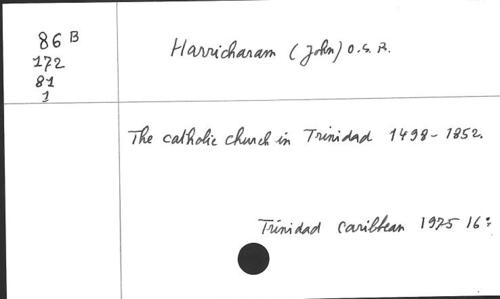 86 B
172
81
1
Harricharam (John) O.S.R.
The catholic church in Trinidad 1498-1852.
Trinidad caribbean 1975 16: